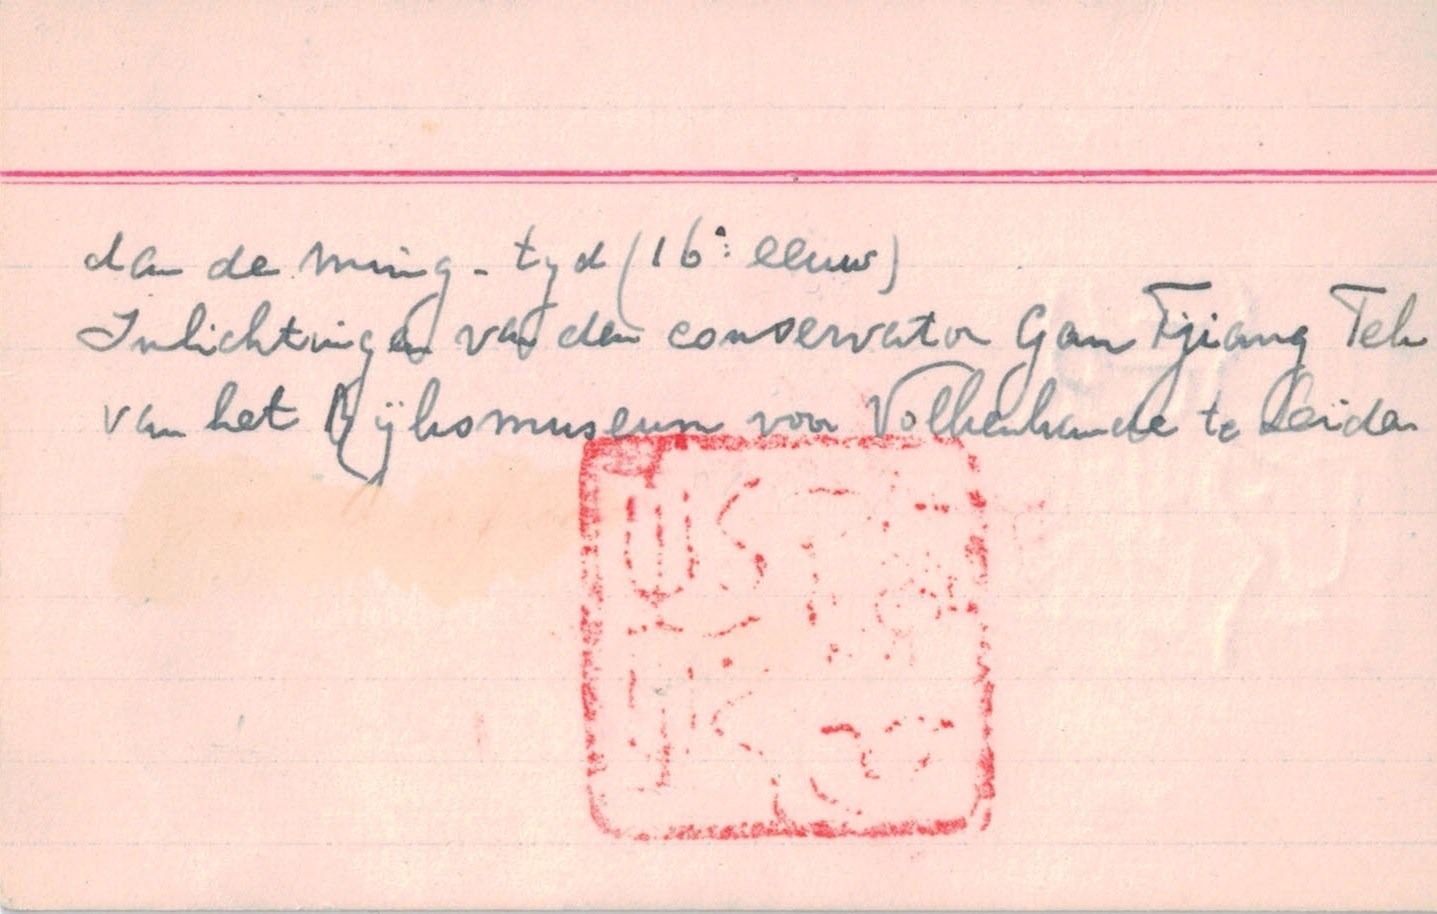 dan de Ming-tyd (16e eeuw)
Inlichtingen van den conservator Gan Tjiang Tek
van het Rijksmuseum voor Volkenkunde te Leiden